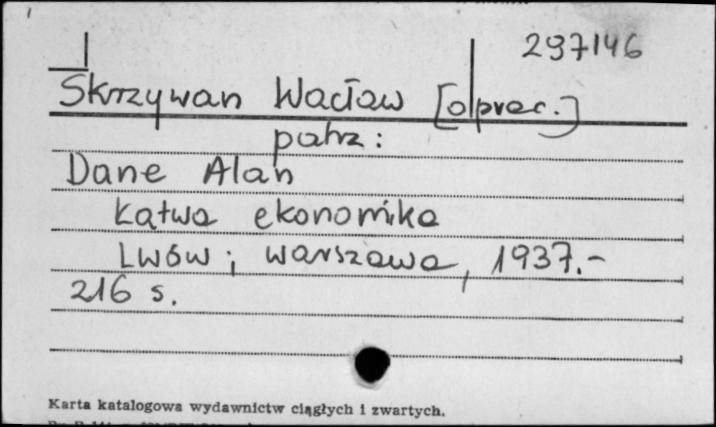 297146
Skrzywan Wacław [oprac.]
patrz:
Dane Alan
Łatwa ekonomika
Lwów; Warszawa, 1937.-
216 s.
Karta katalogowa wydawnictw ciągłych i zwartych.